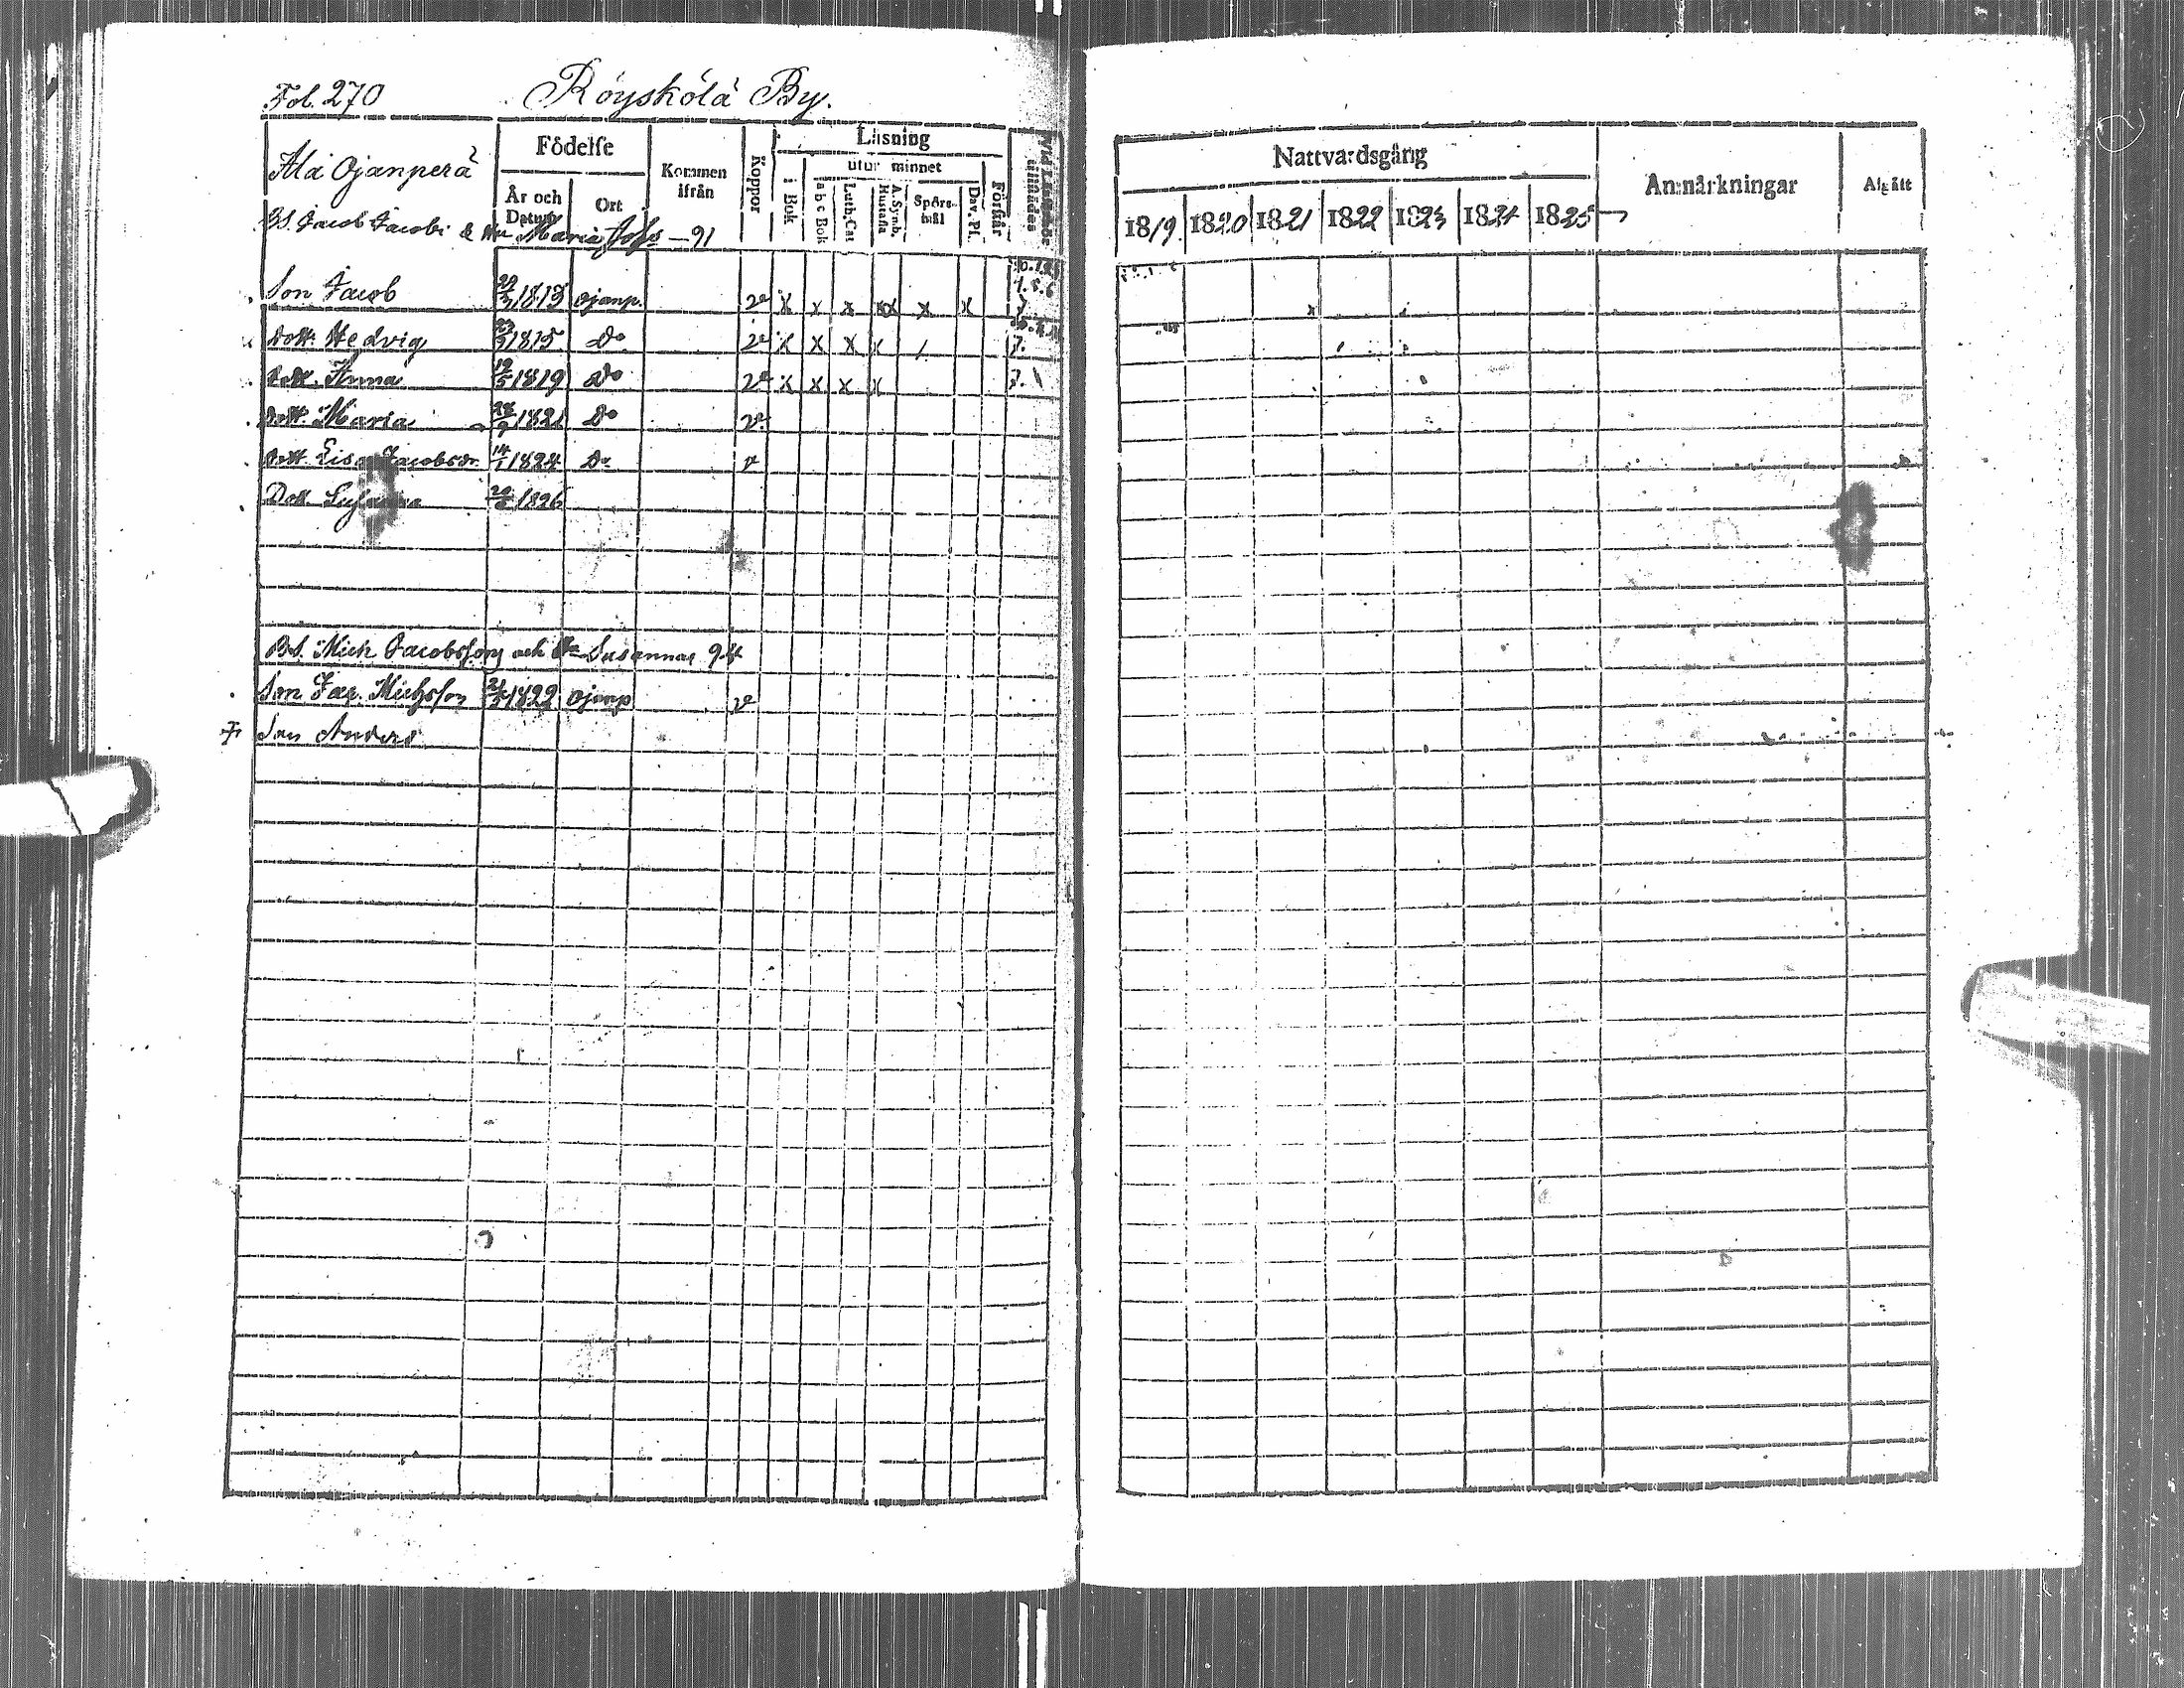 Fol. 270 Röyskölä By.
Ala Ojanperä
Födelse
År och Datum
Ort
Kommen ifrån
Koppor
Läsning
i Bok
utur minnet
a b c Bok
Luth. Cat
A. Symb. Hustafla
Spörsmål
Dav. Ps.
Förstår
Bs. Jacob Jacobi & Hu Maria — 91
Son Jacob 1813 Ojanp. 2 x x x xx x x
Dott. Hedvig 1815 Do x x x x
Dott. Anna 19/5 1819 Do x x x x
Dott. Maria 1821 Do
Dott. Lisa Jacobsdr. 14/1 1824 Do
Dott. 1826
Bs. Mich Jacobsson och Susanna
Son Jac. Michsson 1822 Ojanp
Son Anders
Nattvardsgång
1819. 1820 1821 1822 1823 1824 1825
Anmärkningar
Afgått